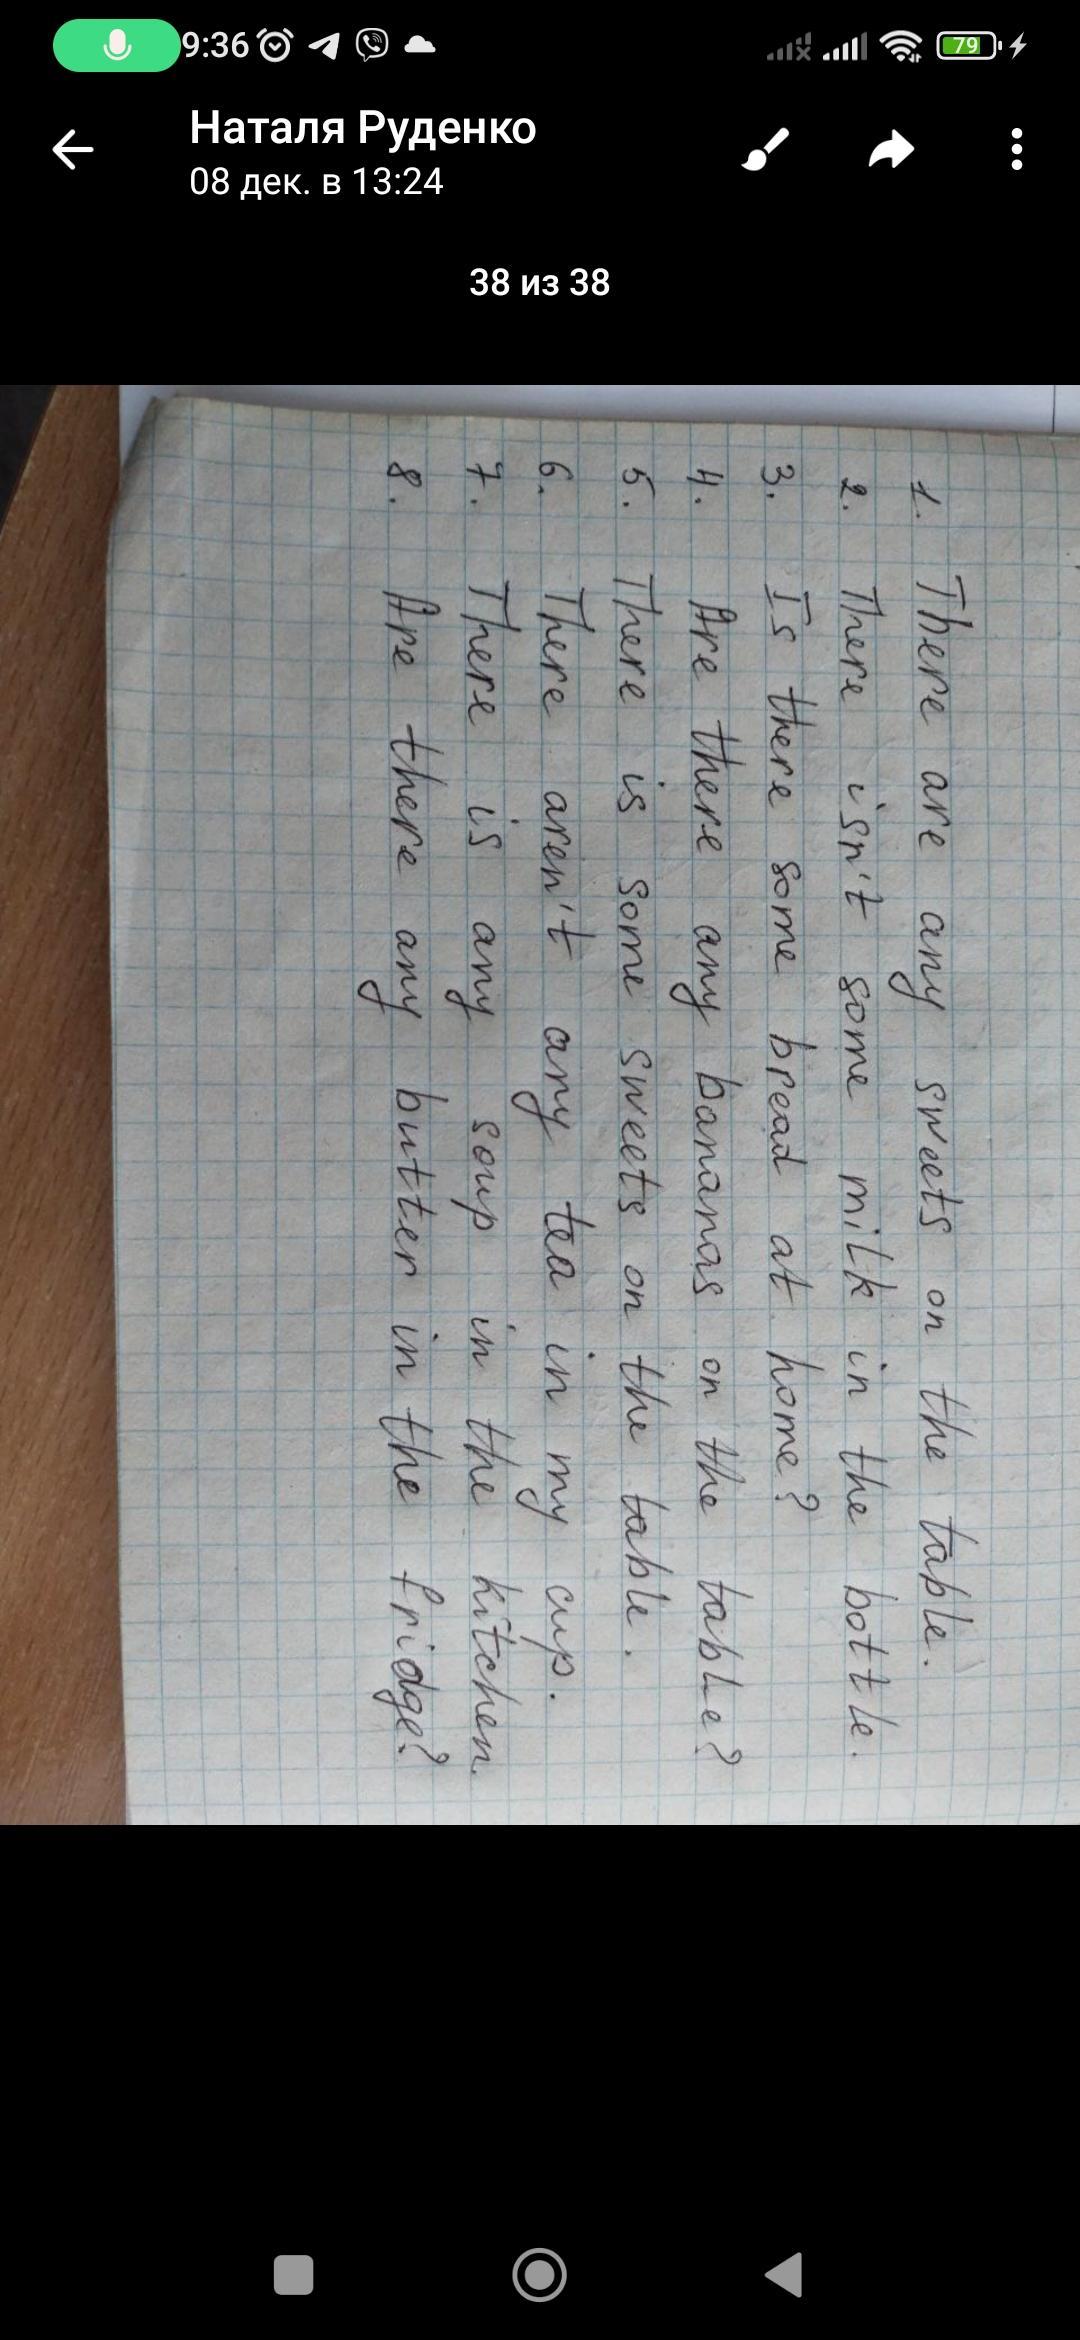 9:36
79
Наталя Руденко
08 дек. в 13:24
38 из 38
1. There are any sweets on the table.
2. There isn't some milk in the bottle.
3. Is there some bread at home?
4. Are there any bananas on the table?
5. There is some sweets on the table.
6. There aren't any tea in my cup.
7. There is any soup in the kitchen.
8. Are there any butter in the fridge?